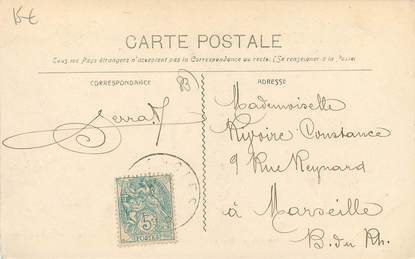 15€
CARTE POSTALE
Tous les Pays étrangers n'acceptent pas la Correspondance au recto. (Se renseigner à la Poste)
CORRESPONDANCE
83
ADRESSE
Serra
Mademoiselle
Rivoire Constance
9 Rue Reynard
à Marseille
B. du Rh.
5c
POSTES